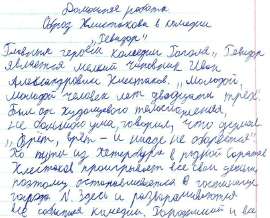 Домашняя работа
Образ Хлестакова в комедии
"Ревизор"
Главным героем комедии Гоголя "Ревизор
является мелкий чиновник Иван
Александрович Хлестаков. "Молодой,
молодой человек лет двадцати трех.
Был он худощавого телосложения,
не большого ума, говорил, что думал
"Врёт, врёт - и нигде не оборвётся"
По пути из Петербурга в родной Саратов
Хлестаков проигрывает все свои деньги,
поэтому останавливается в гостинице
города N. Здесь и разыгрываются
все события комедии. Городничий и все